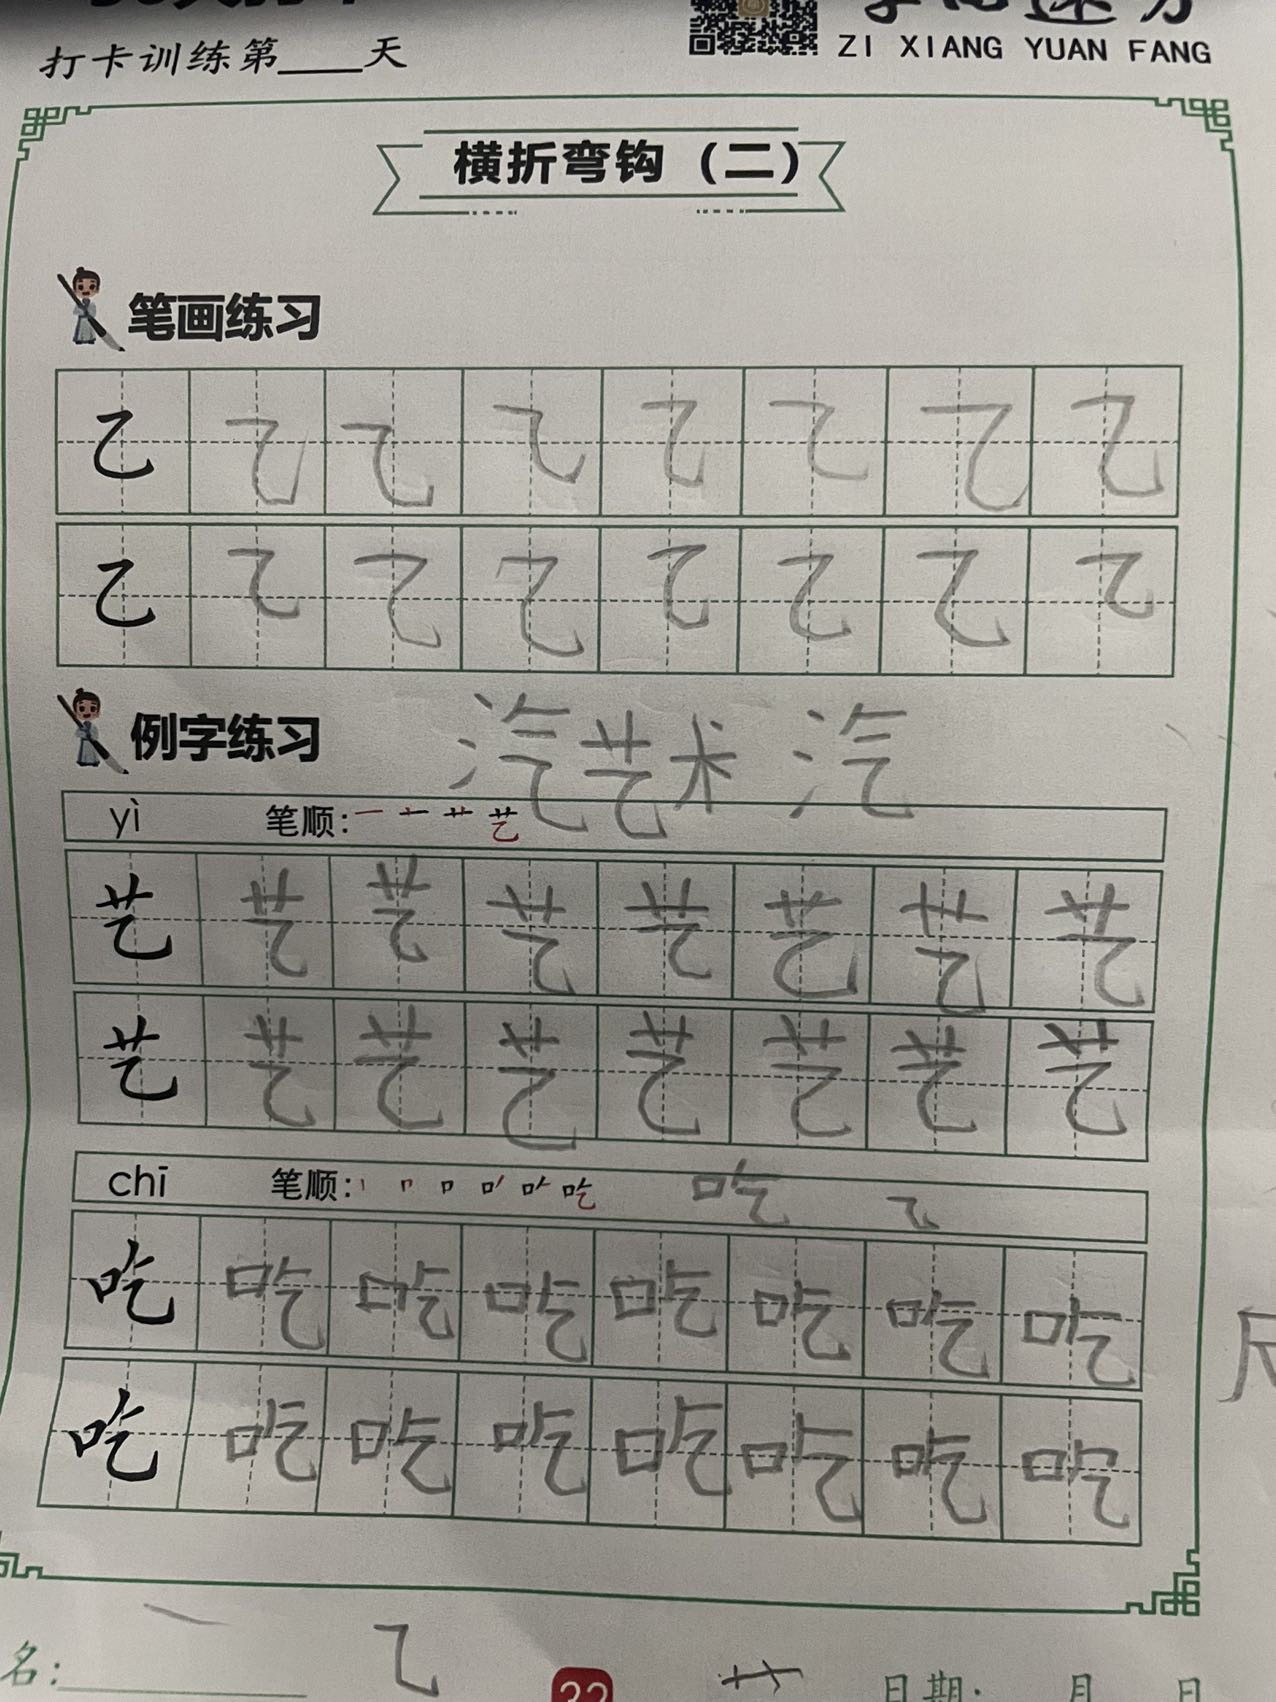 打卡训练第____天
ZI XIANG YUAN FANG
横折弯钩（二）
笔画练习
乙 乙 乙 乙 乙 乙 乙 乙
乙 乙 乙 乙 乙 乙 乙 乙
例字练习 汽 艺 术 汽
yì 笔顺: 一 十 艹 艺
艺 艺 艺 艺 艺 艺 艺 艺
艺 艺 艺 艺 艺 艺 艺 艺
chī 笔顺: 丨 𠃍 口 口丿 吃 吃 乙
吃 吃 吃 吃 吃 吃 吃 吃
尺
吃 吃 吃 吃 吃 吃 吃 吃
一 乙 艹
名:____ 32 日期: 月 日